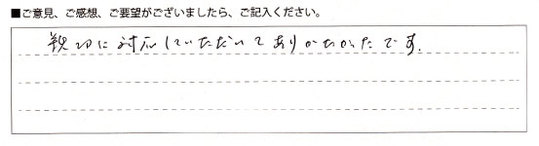 ■ご意見、ご感想、ご要望がございましたら、ご記入ください。
親切に対応していただいてありがたかったです.